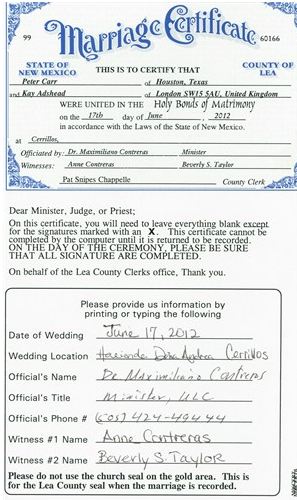 Marriage Certificate
99
60166
STATE OF
NEW MEXICO
COUNTY OF
LEA
THIS IS TO CERTIFY THAT
Peter Carr of Houston, Texas
and Kay Adshead of London SW15 5AU, United Kingdom
WERE UNITED IN THE Holy Bonds of Matrimony
on the 17th day of June, 2012
in accordance with the Laws of the State of New Mexico.
at Cerrillos,
Officiated by: Dr. Maximiliano Contreras Minister
Witnesses: Anne Contreras Beverly S. Taylor
Pat Snipes Chappelle County Clerk
Dear Minister, Judge, or Priest;
On this certificate, you will need to leave everything blank except
for the signatures marked with an X. This certificate cannot be
completed by the computer until it is returned to be recorded.
ON THE DAY OF THE CEREMONY, PLEASE BE SURE
THAT ALL SIGNATURE ARE COMPLETED.
On behalf of the Lea County Clerks office, Thank you.
Please provide us information by
printing or typing the following
Date of Wedding June 17, 2012
Wedding Location Hacienda Doña Andrea Cerrillos
Official's Name Dr Maximiliano Contreras
Official's Title Minister, ULC
Official's Phone # (505) 424-
Witness #1 Name Anne Contreras
Witness #2 Name Beverly S. Taylor
Please do not use the church seal on the gold area. This is
for the Lea County seal when the marriage is recorded.